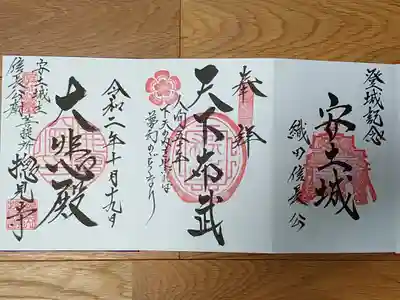 登城記念
安土城
織田信長公
奉拝
天下布武
人間五十年
夢幻のごとくなり
令和二年十月十九日
大悲殿
安土城
信長公廟
守護所
摠見寺